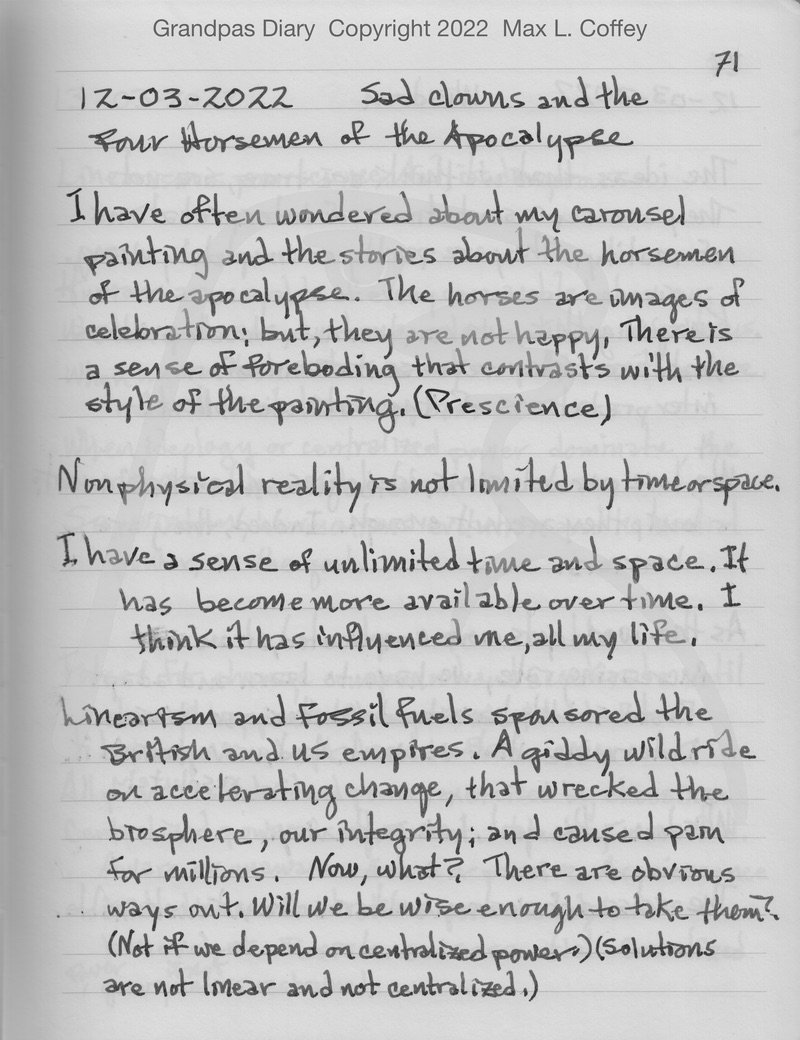 Grandpas Diary Copyright 2022 Max L. Coffey
71
12-03-2022 Sad clowns and the
Four Horsemen of the Apocalypse
I have often wondered about my carousel
painting and the stories about the horsemen
of the apocalypse. The horses are images of
celebration; but, they are not happy. There is
a sense of foreboding that contrasts with the
style of the painting. (Prescience)
Nonphysical reality is not limited by time or space.
I have a sense of unlimited time and space. It
has become more available over time. I
think it has influenced me, all my life.
Linearism and fossil fuels sponsored the
British and US empires. A giddy wild ride
on accelerating change, that wrecked the
biosphere, our integrity; and caused pain
for millions. Now, what? There are obvious
ways out. Will we be wise enough to take them?
(Not if we depend on centralized power.) (Solutions
are not linear and not centralized.)